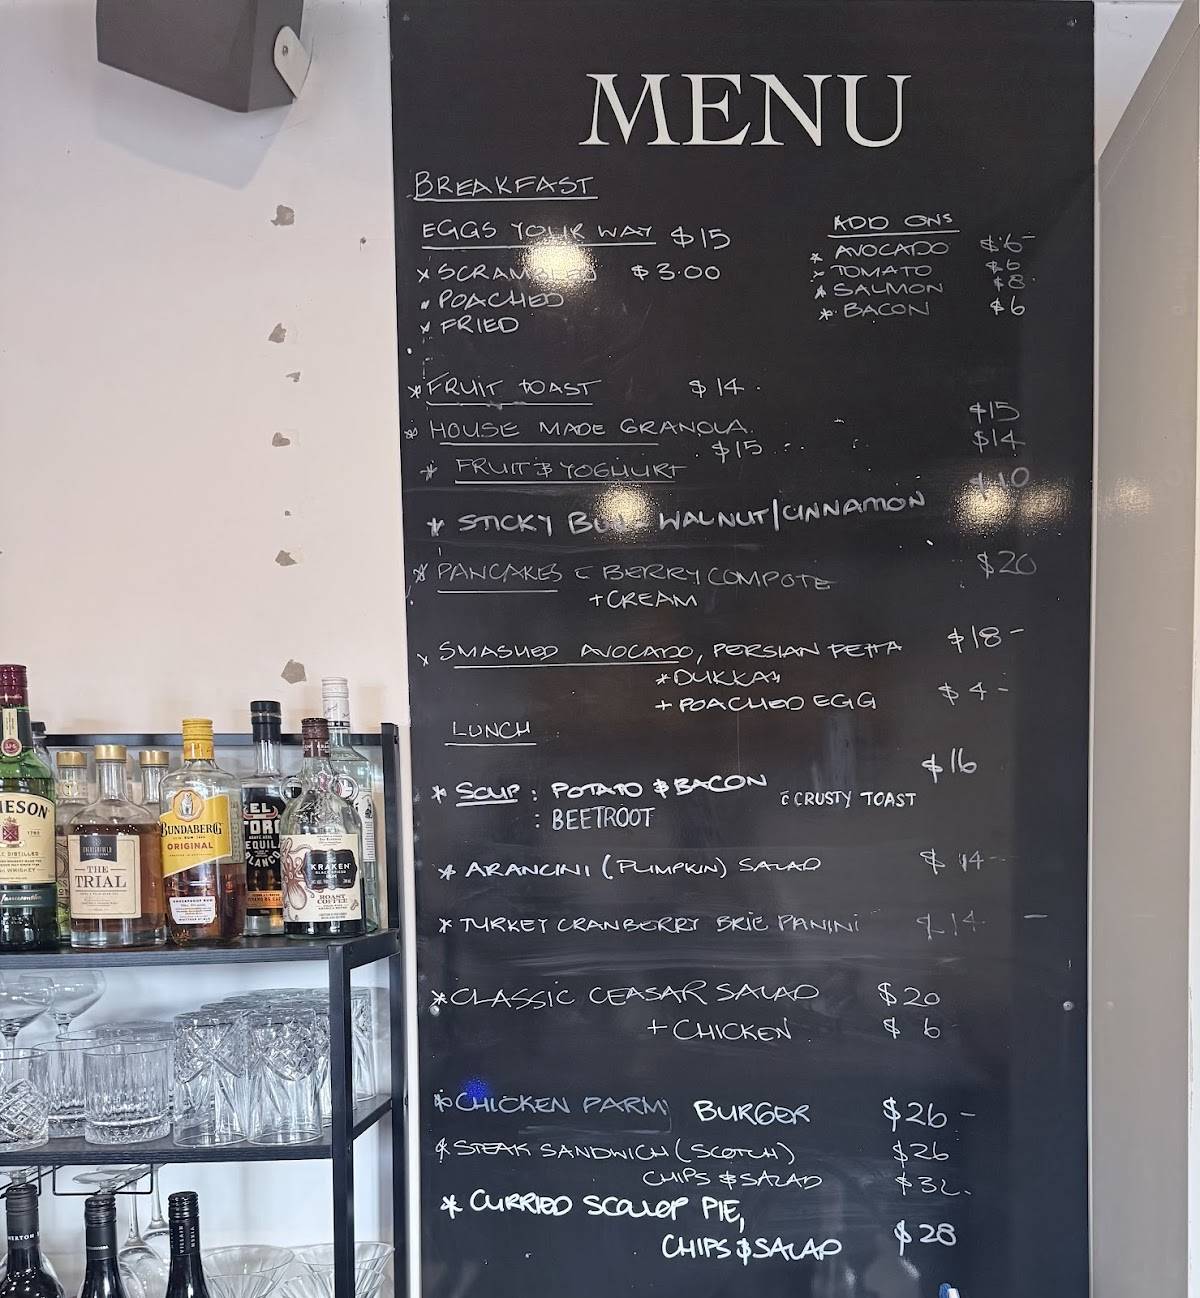 MENU
BREAKFAST
EGGS YOUR WAY $15
* SCRAMBLED $3.00
* POACHED
* FRIED
ADD ONS
* AVOCADO $6-
* TOMATO $6
* SALMON $8
* BACON $6
* FRUIT TOAST $14
* HOUSE MADE GRANOLA $15
$15
* FRUIT & YOGHURT $14
* STICKY WALNUT/CINNAMON $10
* PANCAKES c BERRY COMPOTE $20
+ CREAM
* SMASHED AVOCADO, PERSIAN FETTA $18-
* DUKKAH
+ POACHED EGG $4-
LUNCH
* SOUP : POTATO & BACON $16
c̄ CRUSTY TOAST
: BEETROOT
* ARANCINI (PUMPKIN) SALAD $14-
* TURKEY CRANBERRY BRIE PANINI $14 -
* CLASSIC CEASAR SALAD $20
+ CHICKEN $6
* CHICKEN PARM BURGER $26-
* STEAK SANDWICH (SCOTCH) $26
CHIPS & SALAD $32
* CURRIED SCALLOP PIE,
CHIPS & SALAD $28
JAMESON
THE
TRIAL
BUNDABERG
ORIGINAL
EL
TEQUILA
BLANCO
KRAKEN
ROAST
COFFEE